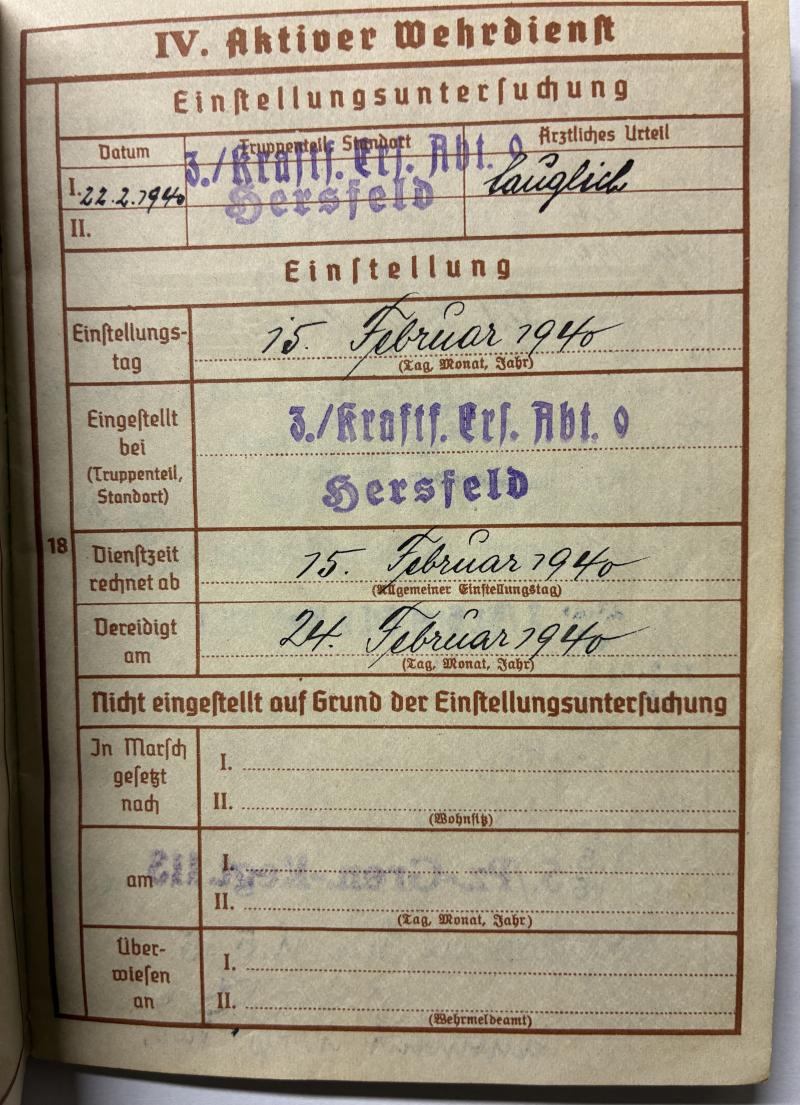 IV. Aktiver Wehrdienst
Einstellungsuntersuchung
Datum Truppenteil, Standort Ärztliches Urteil
I. 22.2.1940 3./Kraftf. Ers. Abt. 9 tauglich
Hersfeld
II.
Einstellung
Einstellungs-
tag
15. Februar 1940
(Tag, Monat, Jahr)
Eingestellt
bei
(Truppenteil,
Standort)
3./Kraftf. Ers. Abt. 9
Hersfeld
18
Dienstzeit
rechnet ab
15. Februar 1940
(Allgemeiner Einstellungstag)
Vereidigt
am
24. Februar 1940
(Tag, Monat, Jahr)
Nicht eingestellt auf Grund der Einstellungsuntersuchung
In Marsch
gesetzt
nach
I.
II.
(Wohnsitz)
am
I.
II.
(Tag, Monat, Jahr)
Über-
wiesen
an
I.
II.
(Wehrmeldeamt)